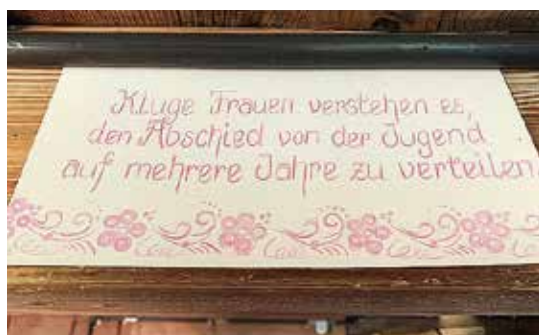 Kluge Frauen verstehen es,
den Abschied von der Jugend
auf mehrere Jahre zu verteilen.